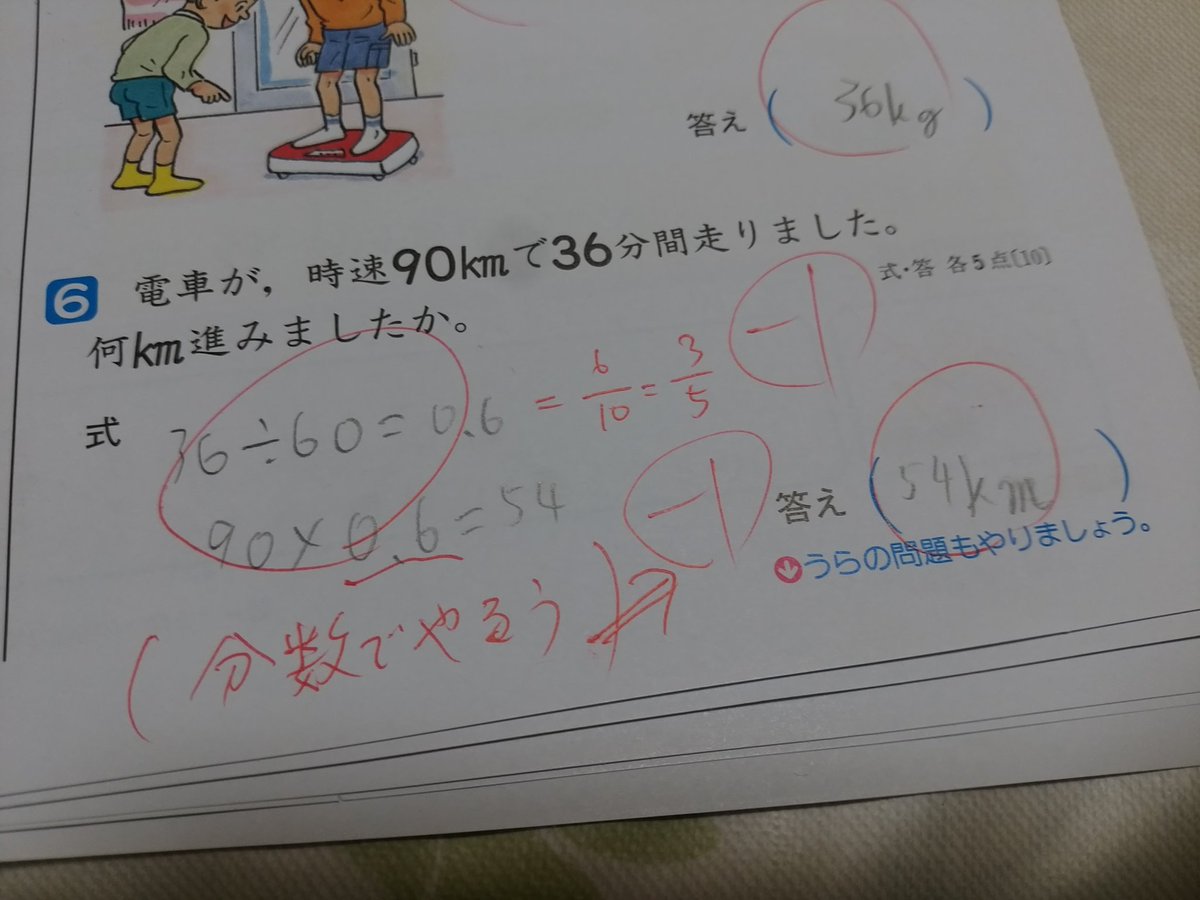 答え ( 36kg )
6 電車が，時速90kmで36分間走りました。
何km進みましたか。
式・答 各5点〔10〕
式 36÷60=0.6 = 6/10 = 3/5 -1
90×0.6=54 -1
答え ( 54km )
うらの問題もやりましょう。
(分数でやろう)